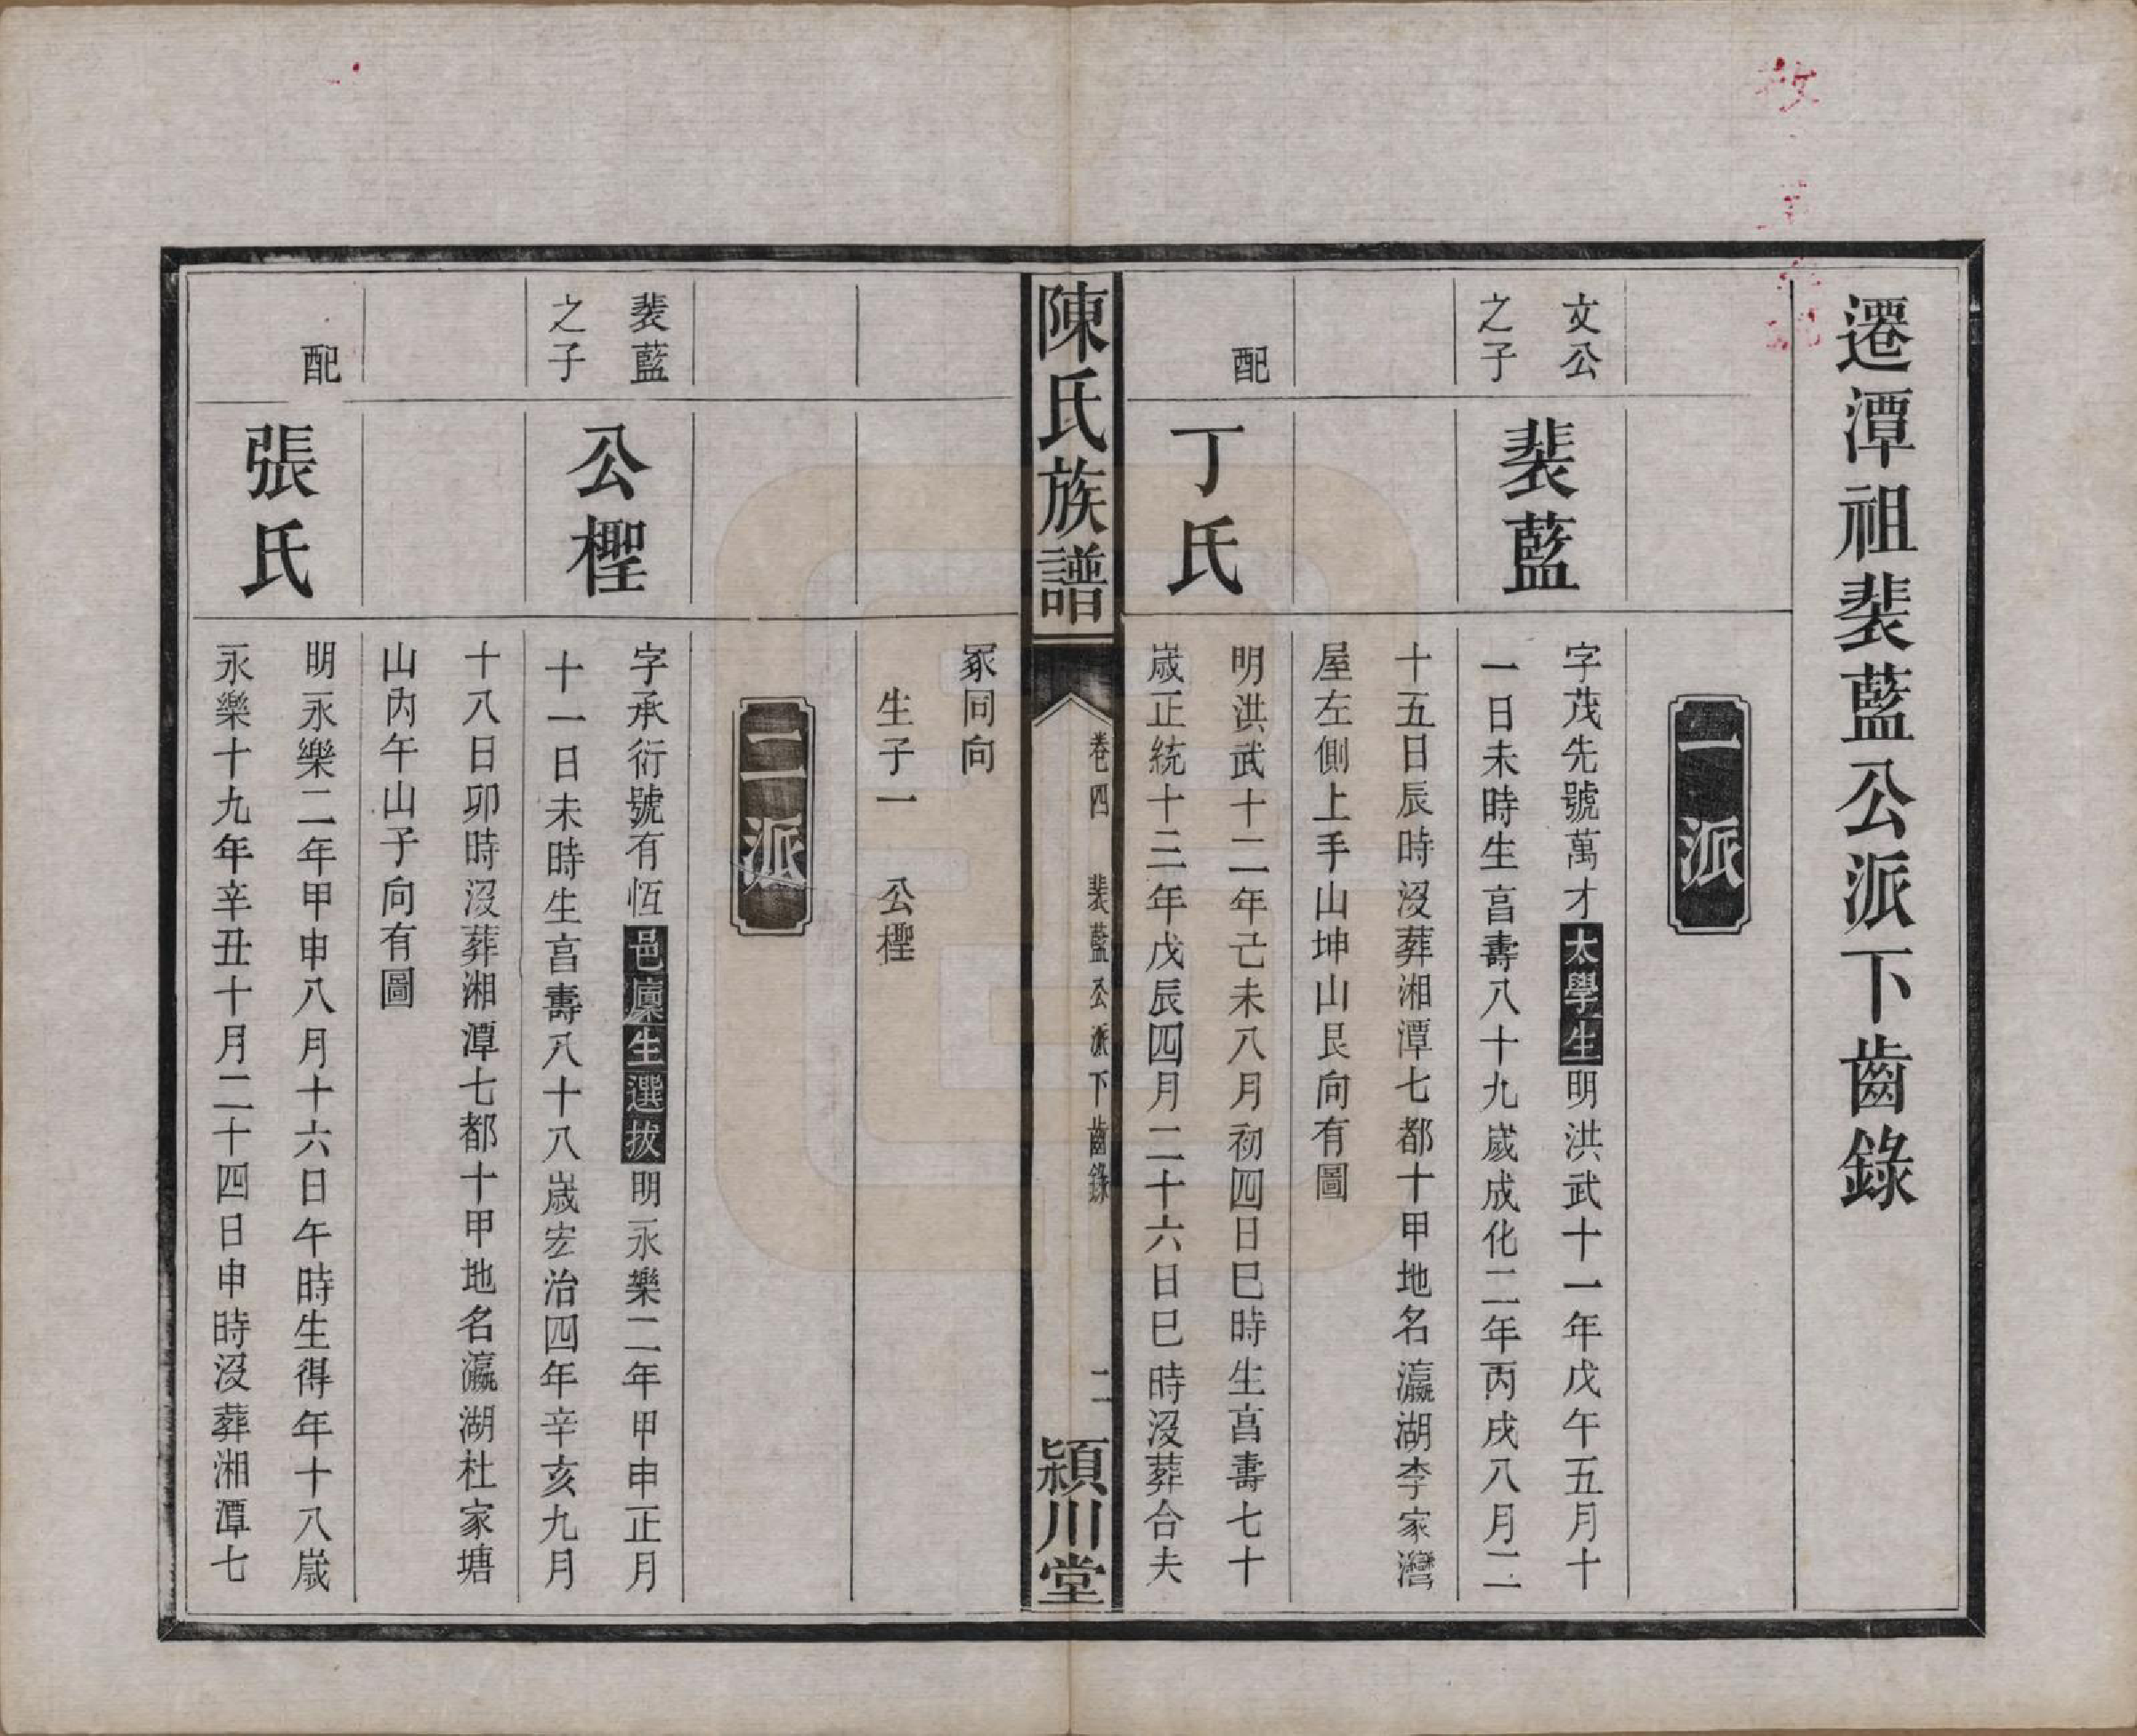 遷潭祖裴藍公派下齒錄
一派
文公
之子
裴藍
字茂先號萬才太學生明洪武十一年戊午五月十
一日未時生亯壽八十九歲成化二年丙戌八月二
十五日辰時沒葬湘潭七都十甲地名瀛湖李家灣
屋左側上手山坤山艮向有圖
配
丁氏
明洪武十二年己未八月初四日巳時生亯壽七十
歲正統十三年戊辰四月二十六日巳時沒葬合夫
陳氏族譜
卷四 裴藍公派下齒錄
二
潁川堂
冢同向
生子一 公檉
二派
裴藍
之子
公檉
字承衍號有恆邑廩生選拔明永樂二年甲申正月
十一日未時生亯壽八十八歲宏治四年辛亥九月
十八日卯時沒葬湘潭七都十甲地名瀛湖杜家塘
山內午山子向有圖
配
張氏
明永樂二年甲申八月十六日午時生得年十八歲
永樂十九年辛丑十月二十四日申時沒葬湘潭七